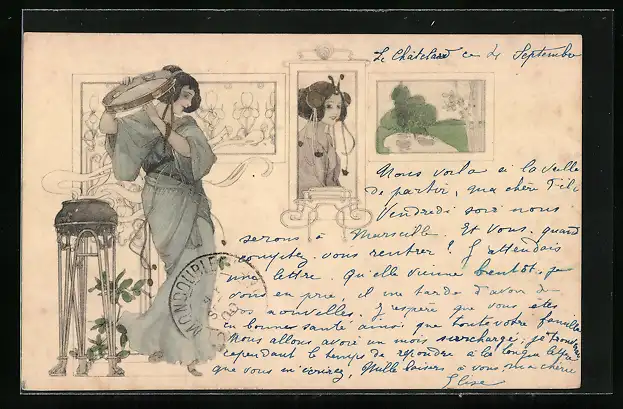 Le Châtelard ce 4 Septembre
Nous voilà à la veille
de partir, ma chère Titi
Vendredi soir nous
serons à Marseille. Et vous, quand
comptez-vous rentrer? J'attendais
une lettre. Qu'elle vienne bientôt, je
vous en prie, il me tarde d'avoir de
vos nouvelles. J'espère que vous êtes
en bonne santé ainsi que toute votre famille
Nous allons avoir un mois surchargé, je trouverai
cependant le temps de répondre à la longue lettre
que vous m'écrirez, Mille baisers à vous ma chérie
Elise
MONDOUBLEAU